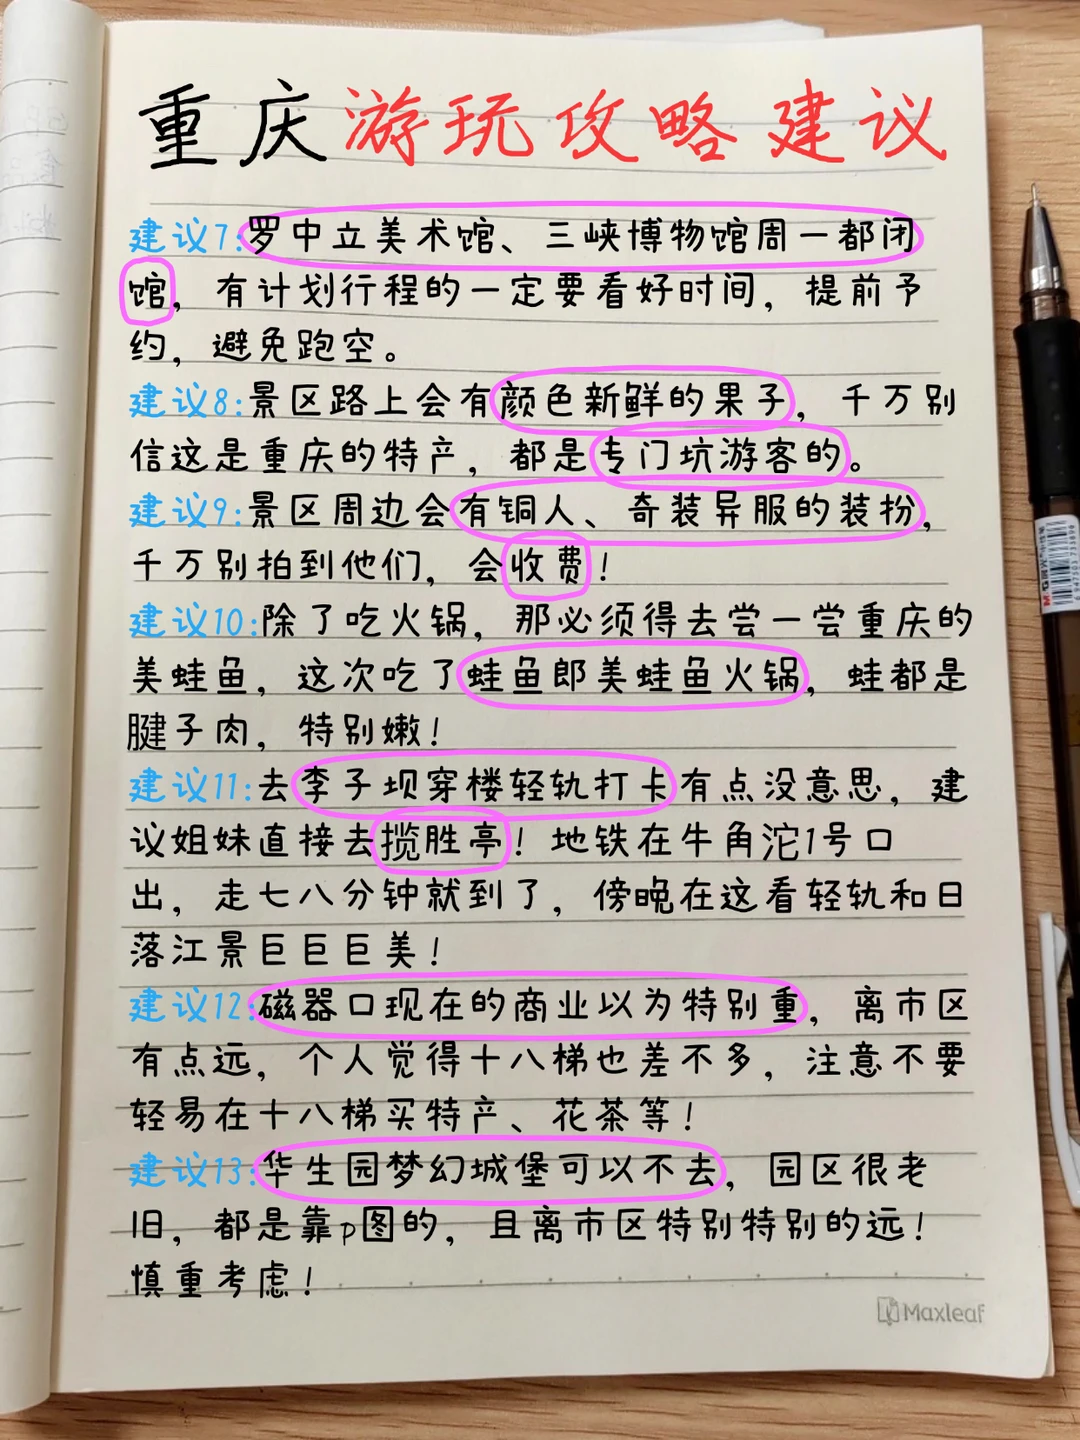 重庆游玩攻略建议
建议7:罗中立美术馆、三峡博物馆周一都闭
馆，有计划行程的一定要看好时间，提前予
约，避免跑空。
建议8:景区路上会有颜色新鲜的果子，千万别
信这是重庆的特产，都是专门坑游客的。
建议9:景区周边会有铜人、奇装异服的装扮，
千万别拍到他们，会收费！
建议10:除了吃火锅，那必须得去尝一尝重庆的
美蛙鱼，这次吃了蛙鱼郎美蛙鱼火锅，蛙都是
腱子肉，特别嫩！
建议11:去李子坝穿楼轻轨打卡有点没意思，建
议姐妹直接去揽胜亭！地铁在牛角沱1号口
出，走七八分钟就到了，傍晚在这看轻轨和日
落江景巨巨巨美！
建议12:磁器口现在的商业以为特别重，离市区
有点远，个人觉得十八梯也差不多，注意不要
轻易在十八梯买特产、花茶等！
建议13:华生园梦幻城堡可以不去，园区很老
旧，都是靠p图的，且离市区特别特别的远！
慎重考虑！
Maxleaf
M&G